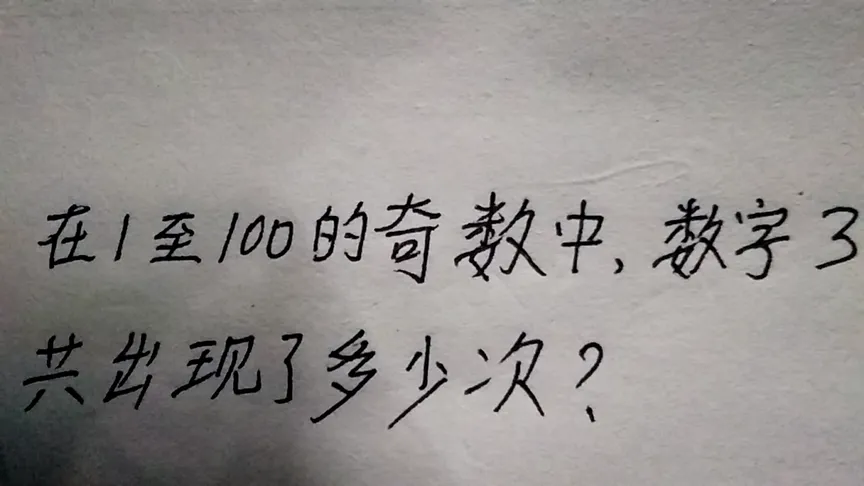 在1至100的奇数中,数字3
共出现了多少次?